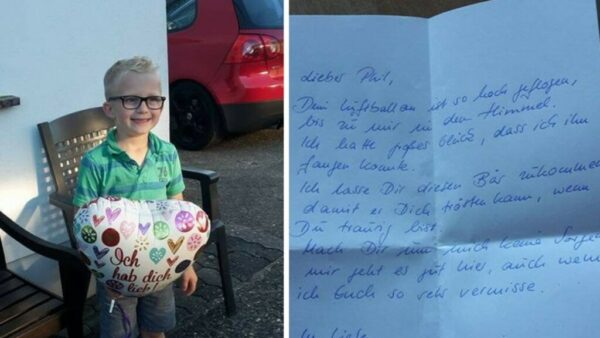 Ich
hab dich
lieb!
lieber Phil,
Dein Luftballon ist so hoch geflogen,
bis zu mir in den Himmel.
Ich hatte großes Glück, dass ich ihn
fangen konnte.
Ich lasse Dir diesen Bär zukommen
damit er Dich trösten kann, wenn
Du traurig bist.
Mach Dir um mich keine Sorgen
mir geht es gut hier, auch wenn
ich Euch so sehr vermisse.
In Liebe